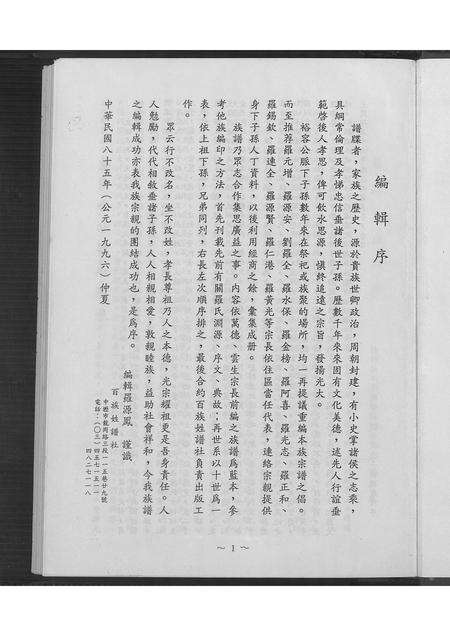 編輯序
譜牒者，家族之歷史，源於貴族世卿政治，周朝封建，有小史掌諸侯之志乘，
具綱常倫理及孝悌忠信垂諸後世子孫。歷數千年來來固有文化美德，述先人行誼垂
範啓後人孝思，俾可飲水思源，愼終追遠之宗旨，發揚光大。
裕容公脈下子孫數年來在祭祀或族聚的場所，均一再提議重編本族宗譜之倡。
而至推荐羅元增、羅源安、劉羅全、羅水保、羅金榜、羅阿喜、羅光志、羅正和、
羅錫欽、羅連全、羅源賢、羅仁港、羅黃光等宗長依住區當任代表，連絡宗親提供
身下子孫人丁資料，以後利用經商之餘，彙集成冊。
族譜乃眾志合作集思廣益之事。內容依萬德、雲生宗長前編之族譜爲藍本，參
考他族編印之方法，首先刊載先前有關羅氏淵源、序文、典故；再世系以十世爲一
表，依上祖下孫，兄弟同列，右長左次順序排之，最後合約百族姓譜社負責出版工
作。
眾云行不改名，坐不改姓，孝長尊祖乃人之本德，光宗耀祖更是吾身責任。人
人勉勵，代代相敘垂諸子孫，人人相親相愛，敦親睦族，益助社會祥和，今我族譜
之編輯成功亦表我族宗親的團結成功也，是爲序。
編輯羅源鳳 謹識
百族姓譜社
中壢市龍岡路三段一一五巷廿九號
電話：（〇三）四五七一五一一
四八二七一一八
中華民國八十五年（公元一九九六）仲夏
～1～